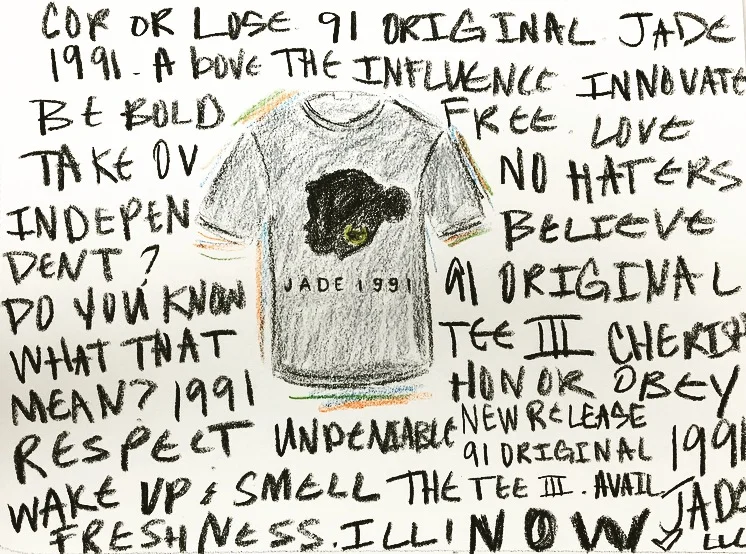 COP OR LOSE. 91 ORIGINAL JADE
1991. ABOVE THE INFLUENCE INNOVATE
BE BOLD
FREE LOVE
TAKE OV
NO HATERS
INDEPEN
DENT?
BELIEVE
DO YOU KNOW
WHAT THAT
MEAN? 1991
JADE 1991
91 ORIGINAL
TEE III CHERISH
HONOR OBEY
RESPECT UNDENIABLE
NEW RELEASE
91 ORIGINAL 1991
WAKE UP & SMELL THE TEE III. AVAIL
JADE
FRESHNESS. ILLI NOW
LLC